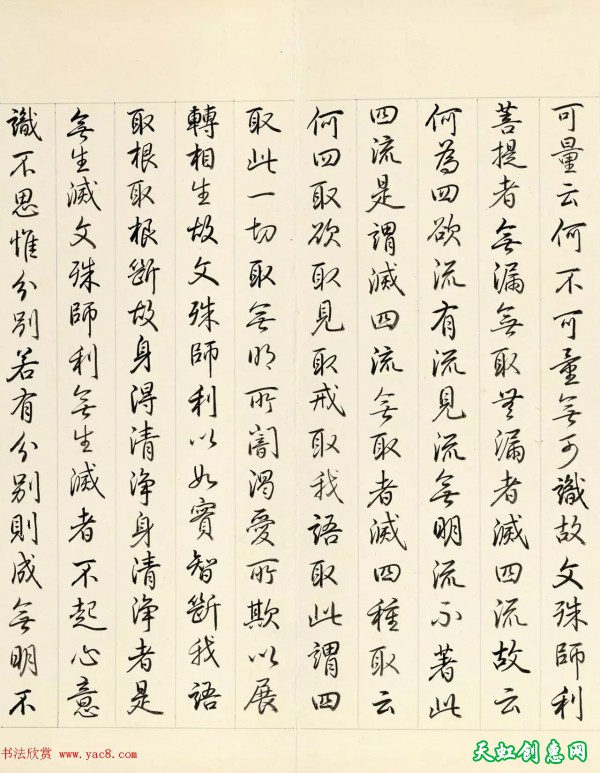 可量云何不可量無可識故文殊師利
菩提者無漏無取無漏者滅四流故云
何為四欲流有流見流無明流不著此
四流是謂滅四流無取者滅四種取云
何四取欲取見取戒取我語取此謂四
取此一切取無明所闇渴愛所欺以展
轉相生故文殊師利以如實智斷我語
取根取根斷故身得清淨身清淨者是
無生滅文殊師利無生滅者不起心意
識不思惟分別若有分別則成無明不
书法欣赏 www.yac8.com
天虹创惠网